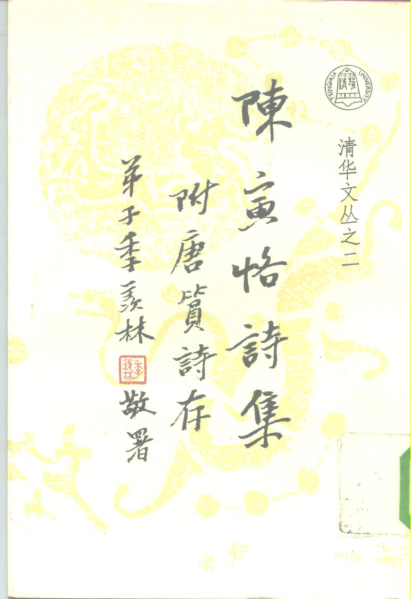 清华文丛之二
陳寅恪詩集
附唐篔詩存
弟子季羡林
敬署
TSINGHUA UNIVERSITY